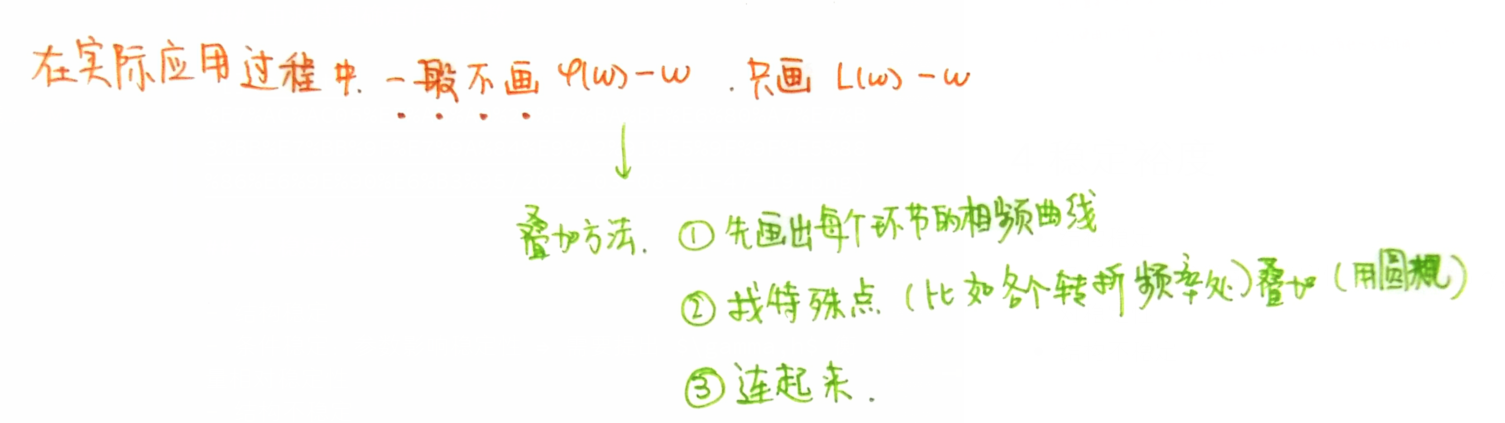 在实际应用过程中.一般不画 φ(ω)-ω .只画 L(ω)-ω
叠加方法. ① 先画出每个环节的相频曲线
② 找特殊点(比如各个转折频率处)叠加(用圆规)
③ 连起来.